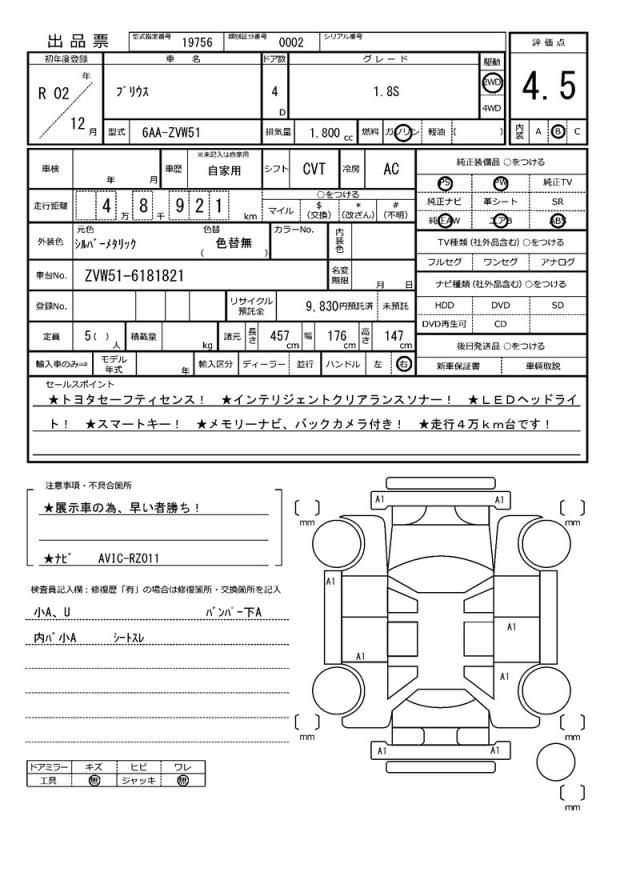 出品票 型式指定番号 19756 類別区分番号 0002 シリアル番号
評価点
4.5
内装 A B C
初年度登録 車名 ドア数 グレード 駆動
R 02 年 12 月 プリウス 4 D 1.8S 2WD 4WD
型式 6AA-ZVW51 排気量 1.800 cc 燃料 ガソリン 軽油 ( )
車検 年 月 車歴 ※未記入は自家用 自家用 シフト CVT 冷房 AC
走行距離 4 万 8 千 9 2 1 km ○をつける
マイル $ (交換) * (改ざん) # (不明)
外装色 元色 シルバーメタリック 色替 ( 色替無 ) カラーNo. 内装色
車台No. ZVW51-6181821 名変期限 月 日
登録No. リサイクル預託金 9,830円預託済 未預託
定員 5( ) 人 積載量 kg 諸元 長さ 457 cm 幅 176 cm 高さ 147 cm
輸入車のみ⇒ モデル年式 年 輸入区分 ディーラー 並行 ハンドル 左 右
純正装備品 ○をつける
PS PW 純正TV
純正ナビ 革シート SR
純正AW エアB ABS
TV種類(社外品含む)○をつける
フルセグ ワンセグ アナログ
ナビ種類(社外品含む)○をつける
HDD DVD SD
DVD再生可 CD
後日発送品 ○をつける
新車保証書 車輌取説
セールスポイント
★トヨタセーフティセンス! ★インテリジェントクリアランスソナー! ★LEDヘッドライ
ト! ★スマートキー! ★メモリーナビ、バックカメラ付き! ★走行4万km台です!
注意事項・不具合箇所
★展示車の為、早い者勝ち!
★ナビ AVIC-RZ011
検査員記入欄:修復歴「有」の場合は修復箇所・交換箇所を記入
小A、U バンパー下A
内バ小A シートスレ
ドアミラー キズ ヒビ ワレ
工具 無 ジャッキ 無
A1 A1
[ ] mm [ ] mm
A1
A1
A1
A1
[ ] mm [ ] mm
A1 A1
[ ] mm